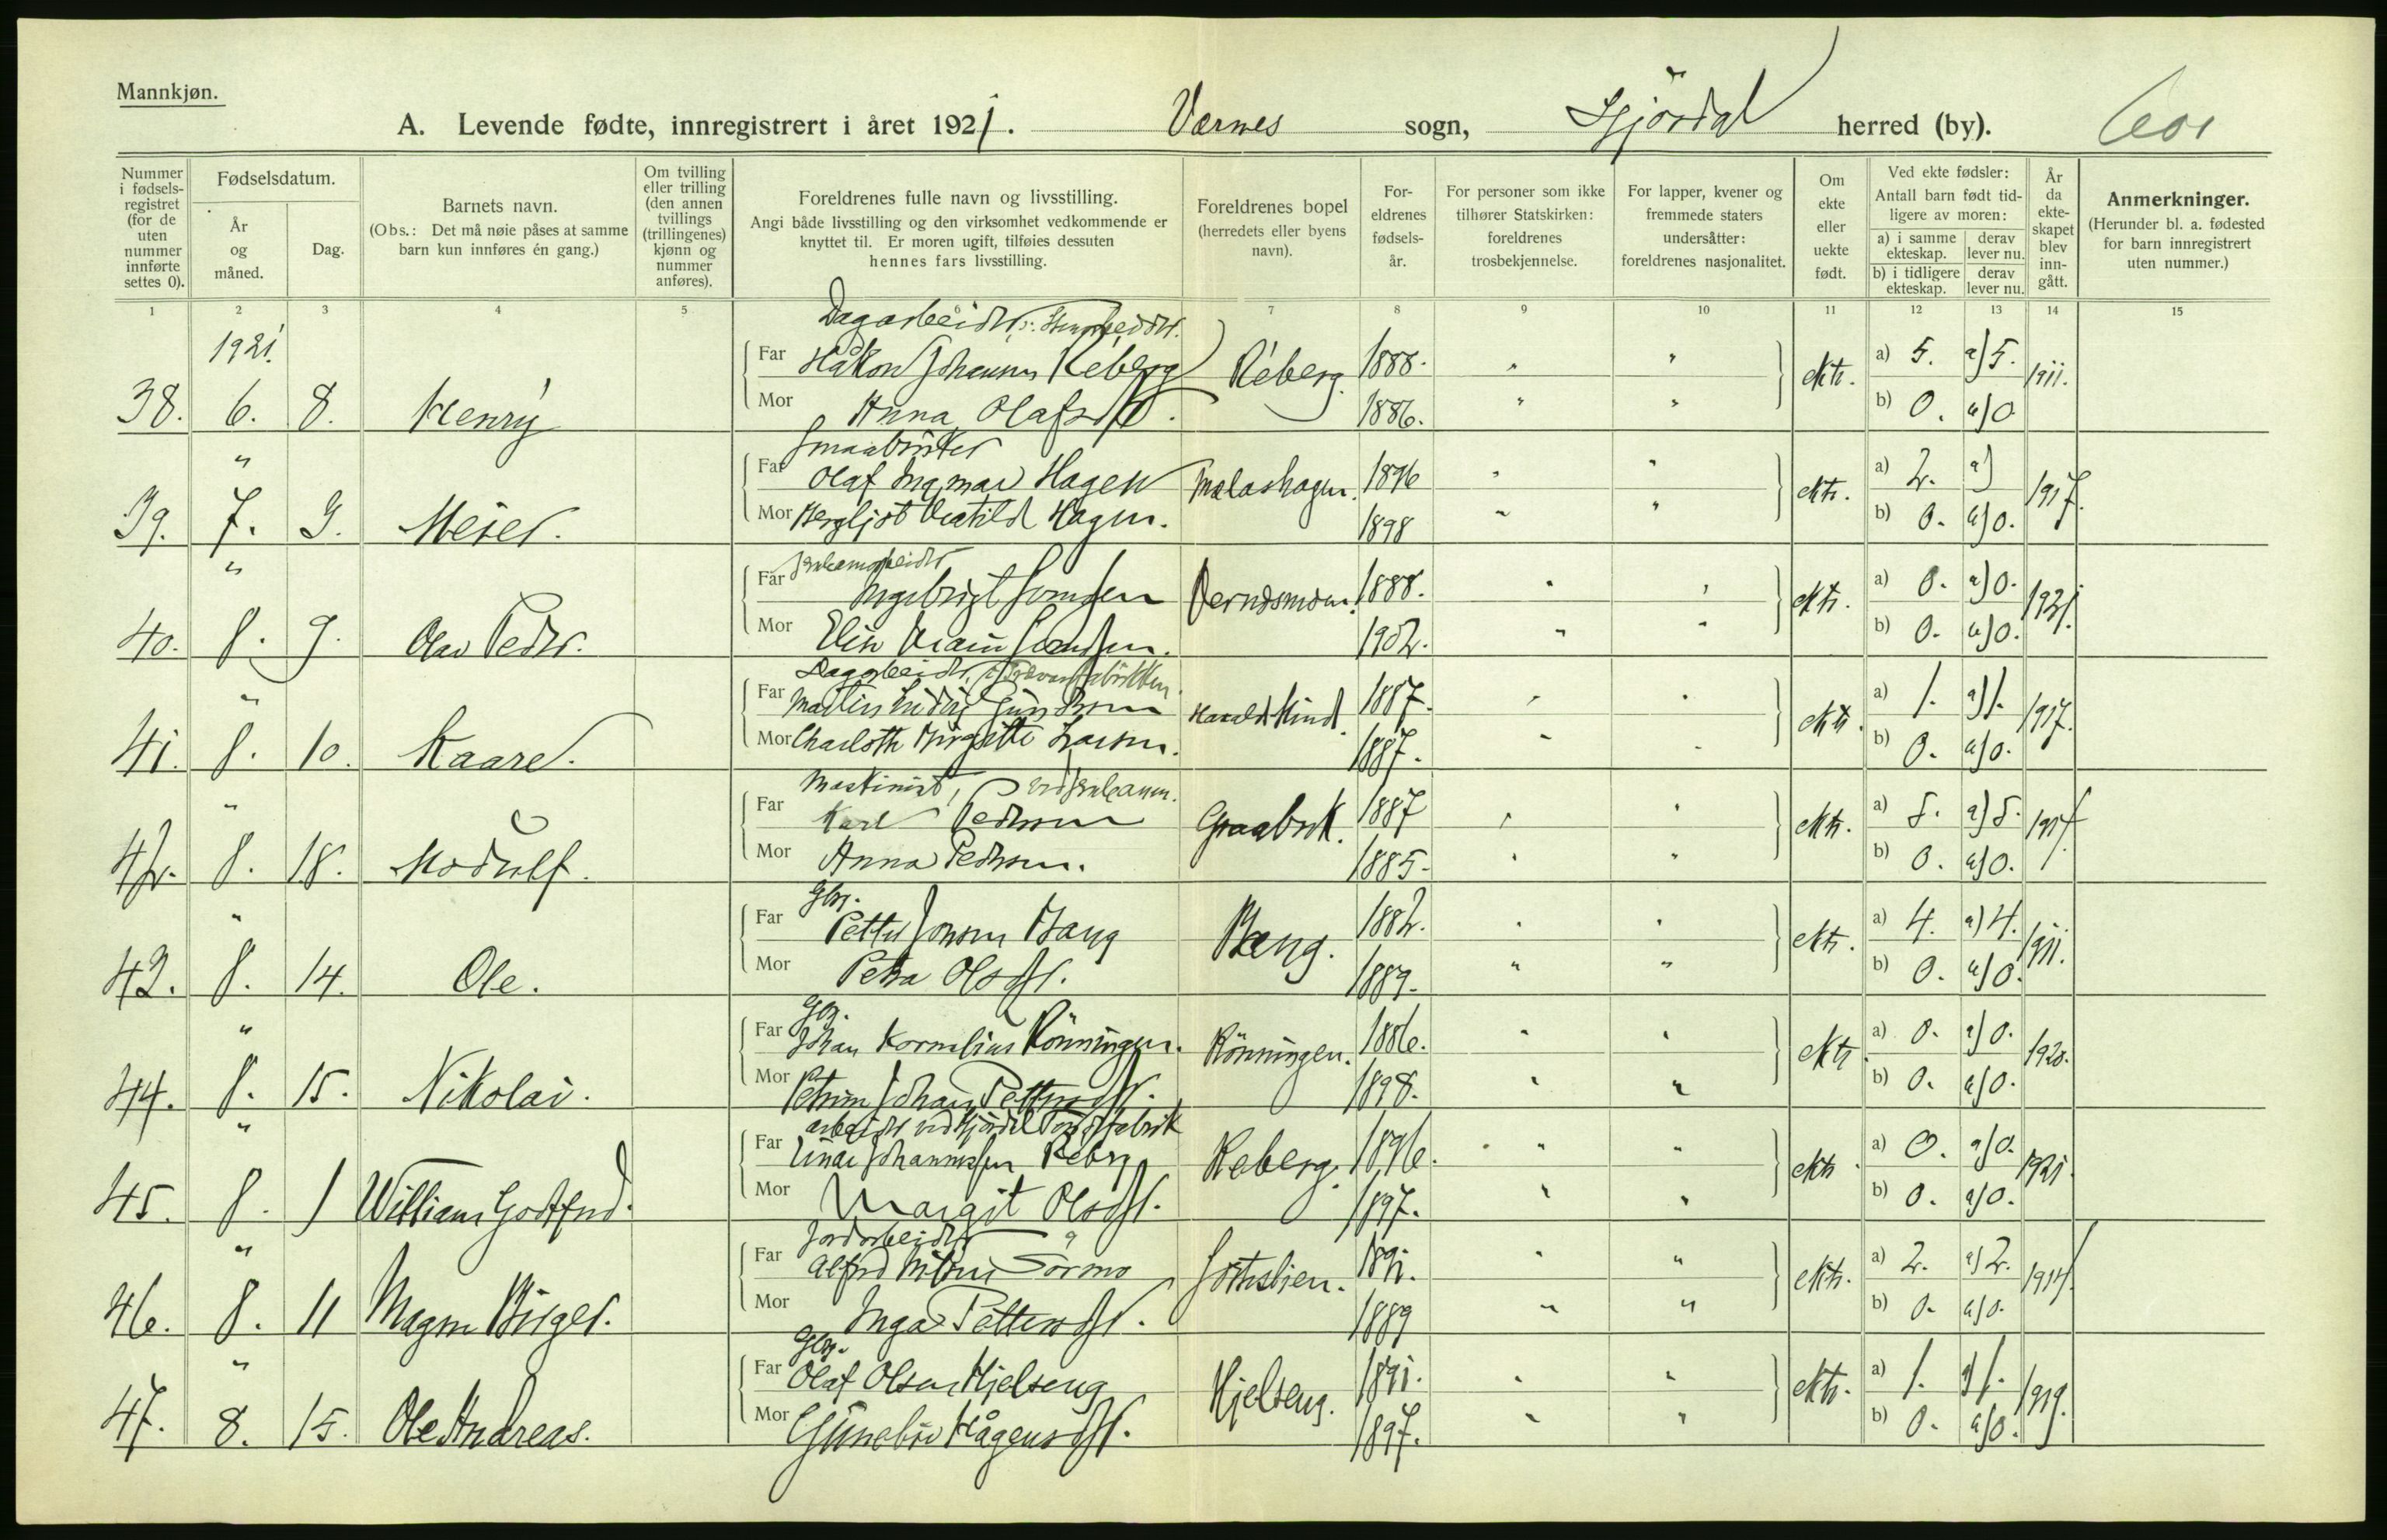 Mannkjøn.
A. Levende fødte, innregistrert i året 1921. Værnes sogn, Stjørdal herred (by). 601
Nummer i fødsels-registret (for de uten nummer innførte settes 0).
Fødselsdatum.
År og måned.
Dag.
Barnets navn.
(Obs.: Det må nøie påses at samme barn kun innføres én gang.)
Om tvilling eller trilling (den annen tvillings (trillingenes) kjønn og nummer anføres).
Foreldrenes fulle navn og livsstilling.
Angi både livsstilling og den virksomhet vedkommende er knyttet til. Er moren ugift, tilføies dessuten hennes fars livsstilling.
Foreldrenes bopel (herredets eller byens navn).
For-eldrenes fødsels-år.
For personer som ikke tilhører Statskirken: foreldrenes trosbekjennelse.
For lapper, kvener og fremmede staters undersåtter: foreldrenes nasjonalitet.
Om ekte eller uekte født.
Ved ekte fødsler: Antall barn født tid-ligere av moren:
a) i samme ekteskap. derav lever nu.
b) i tidligere ekteskap. derav lever nu.
År da ekte-skapet blev inn-gått.
Anmerkninger.
(Herunder bl. a. fødested for barn innregistrert uten nummer.)
1 2 3 4 5 6 7 8 9 10 11 12 13 14 15
1921.
Dagarbeider
Far Håkon Johannes Reberg Reberg. 1888. " " a) 5. a) 5.
38. 6. 8. Henry ekte. 1911.
Mor Anna Olafsdtr. 1886. " " b) 0. a) 0
Smaabruker
" Far Olaf Ingmar Hagen 1896 " " a) 2. a)
39. 7. 3. Meier. ekte. 1917.
Mor Bergljot Matild Hagen. 1898 " " b) 0. a) 0.
" Far Ingebrigt 1888. " " a) 0. a) 0.
40. 8. 9. Olav Peder. ekte. 1921.
Mor Elen 1902. " " b) 0. a) 0.
Dagarbeider,
" Far Martin Ludvig 1887. " " a) 1. a) 1.
41. 8. 10. Kaare. ekte. 1917.
Mor Charlotte Birgitte Larsen. 1887. " " b) 0. a) 0.
Maskinist,
" Far Karl Pedersen Graabrek. 1887 " " a) 5. a) 5.
42. 8. 18. Modulf. ekte.
Mor Anna Pedersen. 1885. " " b) 0. a) 0.
Gbr.
" Far Petter Jonsen Bang Bang. 1882. " " a) 4. a) 4.
43. 8. 14. Ole. ekte. 1911.
Mor Petra Olsdtr. 1889. " " b) 0. a) 0.
Gbr.
" Far Johan Kornelius Rönningen. Rönningen. 1886. " " a) 0. a) 0.
44. 8. 15. Nikolai. ekte. 1920.
Mor 1898. " " b) 0. a) 0.
arbeider ved Stjørdal
" Far Einar Johannessen Reberg Reberg. 1896. " " a) 0. a) 0.
45. 8. 1 William Godtfred. ekte 1921.
Mor Margit Olsdtr. 1897. " " b) 0. a) 0.
Jordarbeider
" Far Alfred Sörmo 1891. " " a) 2. a) 2.
46. 8. 11 Magne Birger. ekte. 1914.
Mor Inga Pettersdtr. 1889 " " b) 0. a) 0.
Gbr.
" Far Olaf Olsen Hjelseng Hjelseng. 1891. " " a) 1. a) 1.
47. 8. 15. Ole Andreas. ekte. 1919.
Mor Gunelie Hågensdtr. 1897. " " b) 0. a) 0.